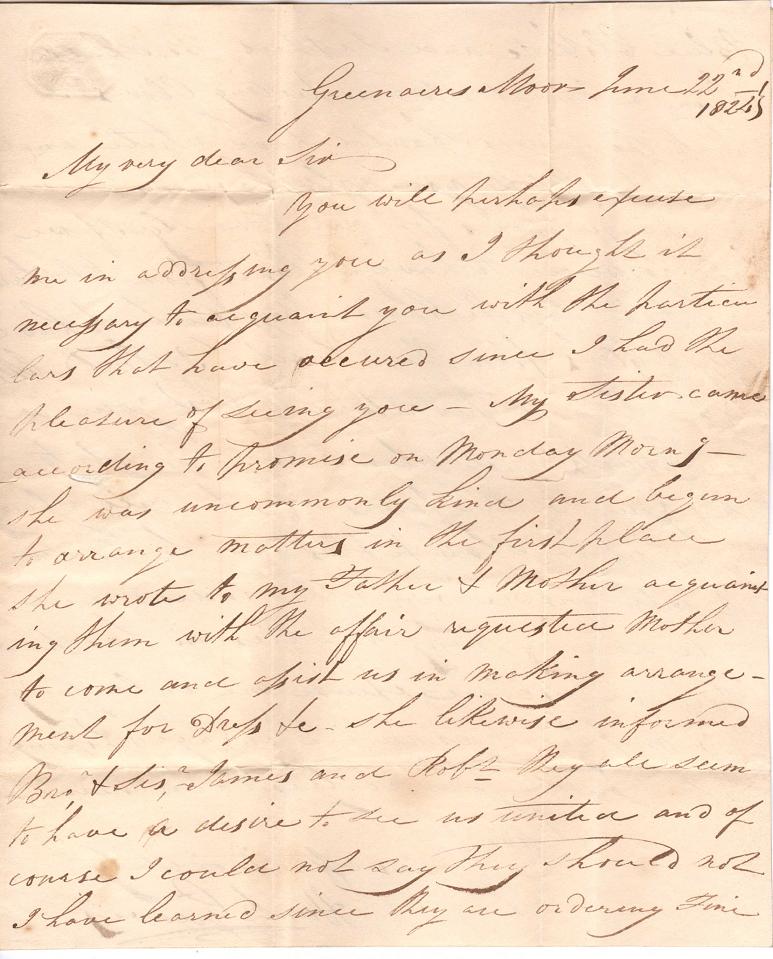 Greenacres Moor June 22nd
1824
My very dear Sir
You will perhaps excuse
me in addressing you as I thought it
necessary to acquaint you with the particu
lars that have occured since I had the
pleasure of seeing you – My Sister came
according to promise on Monday Morng –
she was uncommonly kind and begun
to arrange matters in the first place
she wrote to my Father & Mother acquaint
ing them with the affair requested Mother
to come and assist us in making arrange-
ment for Dress &c – she likewise informed
Bror & Sisr James and Robt they all seem
to have a desire to see us united and of
course I could not say they should not
I have learned since they are ordering Fine